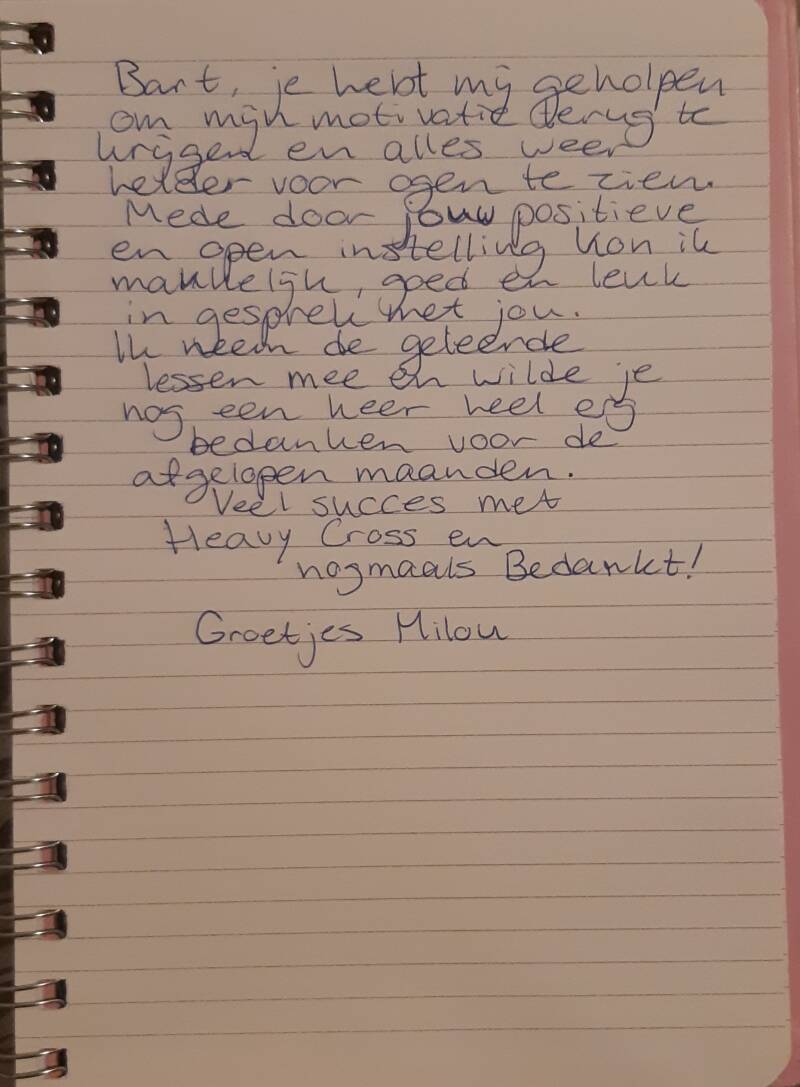 Bart, je hebt mij geholpen
om mijn motivatie terug te
krijgen en alles weer
helder voor ogen te zien.
Mede door jouw positieve
en open instelling kon ik
makkelijk, goed en leuk
in gesprek met jou.
Ik neem de geleerde
lessen mee en wilde je
nog een keer heel erg
bedanken voor de
afgelopen maanden.
Veel succes met
Heavy Cross en
nogmaals Bedankt!
Groetjes Milou